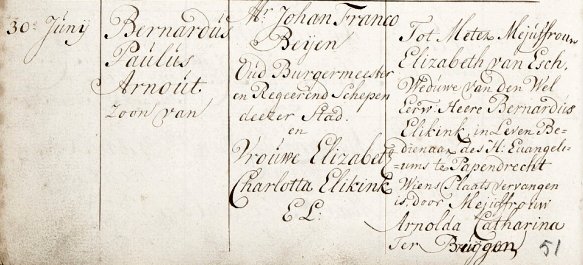 30: Junij
Bernardus
Paulus
Arnout.
Zoon van
Hr. Johan Franco
Beyen
Oud Burgermeester
en Regeerend Schepen
deezer Stad.
en
Vrouwe Elizabeth
Charlotta Elikink
E L:
Tot Meter Mejuffrouw
Elizabeth van Esch,
Weduwe van den Wel
Eerw. Heere Bernardus
Elikink, in Leven Be-
dienaar des H: Euangeli-
=ums te Papendrecht
Wiens Plaats vervangen
is door Mejuffrouw
Arnolda Catharina
Ter Bruggen,
51